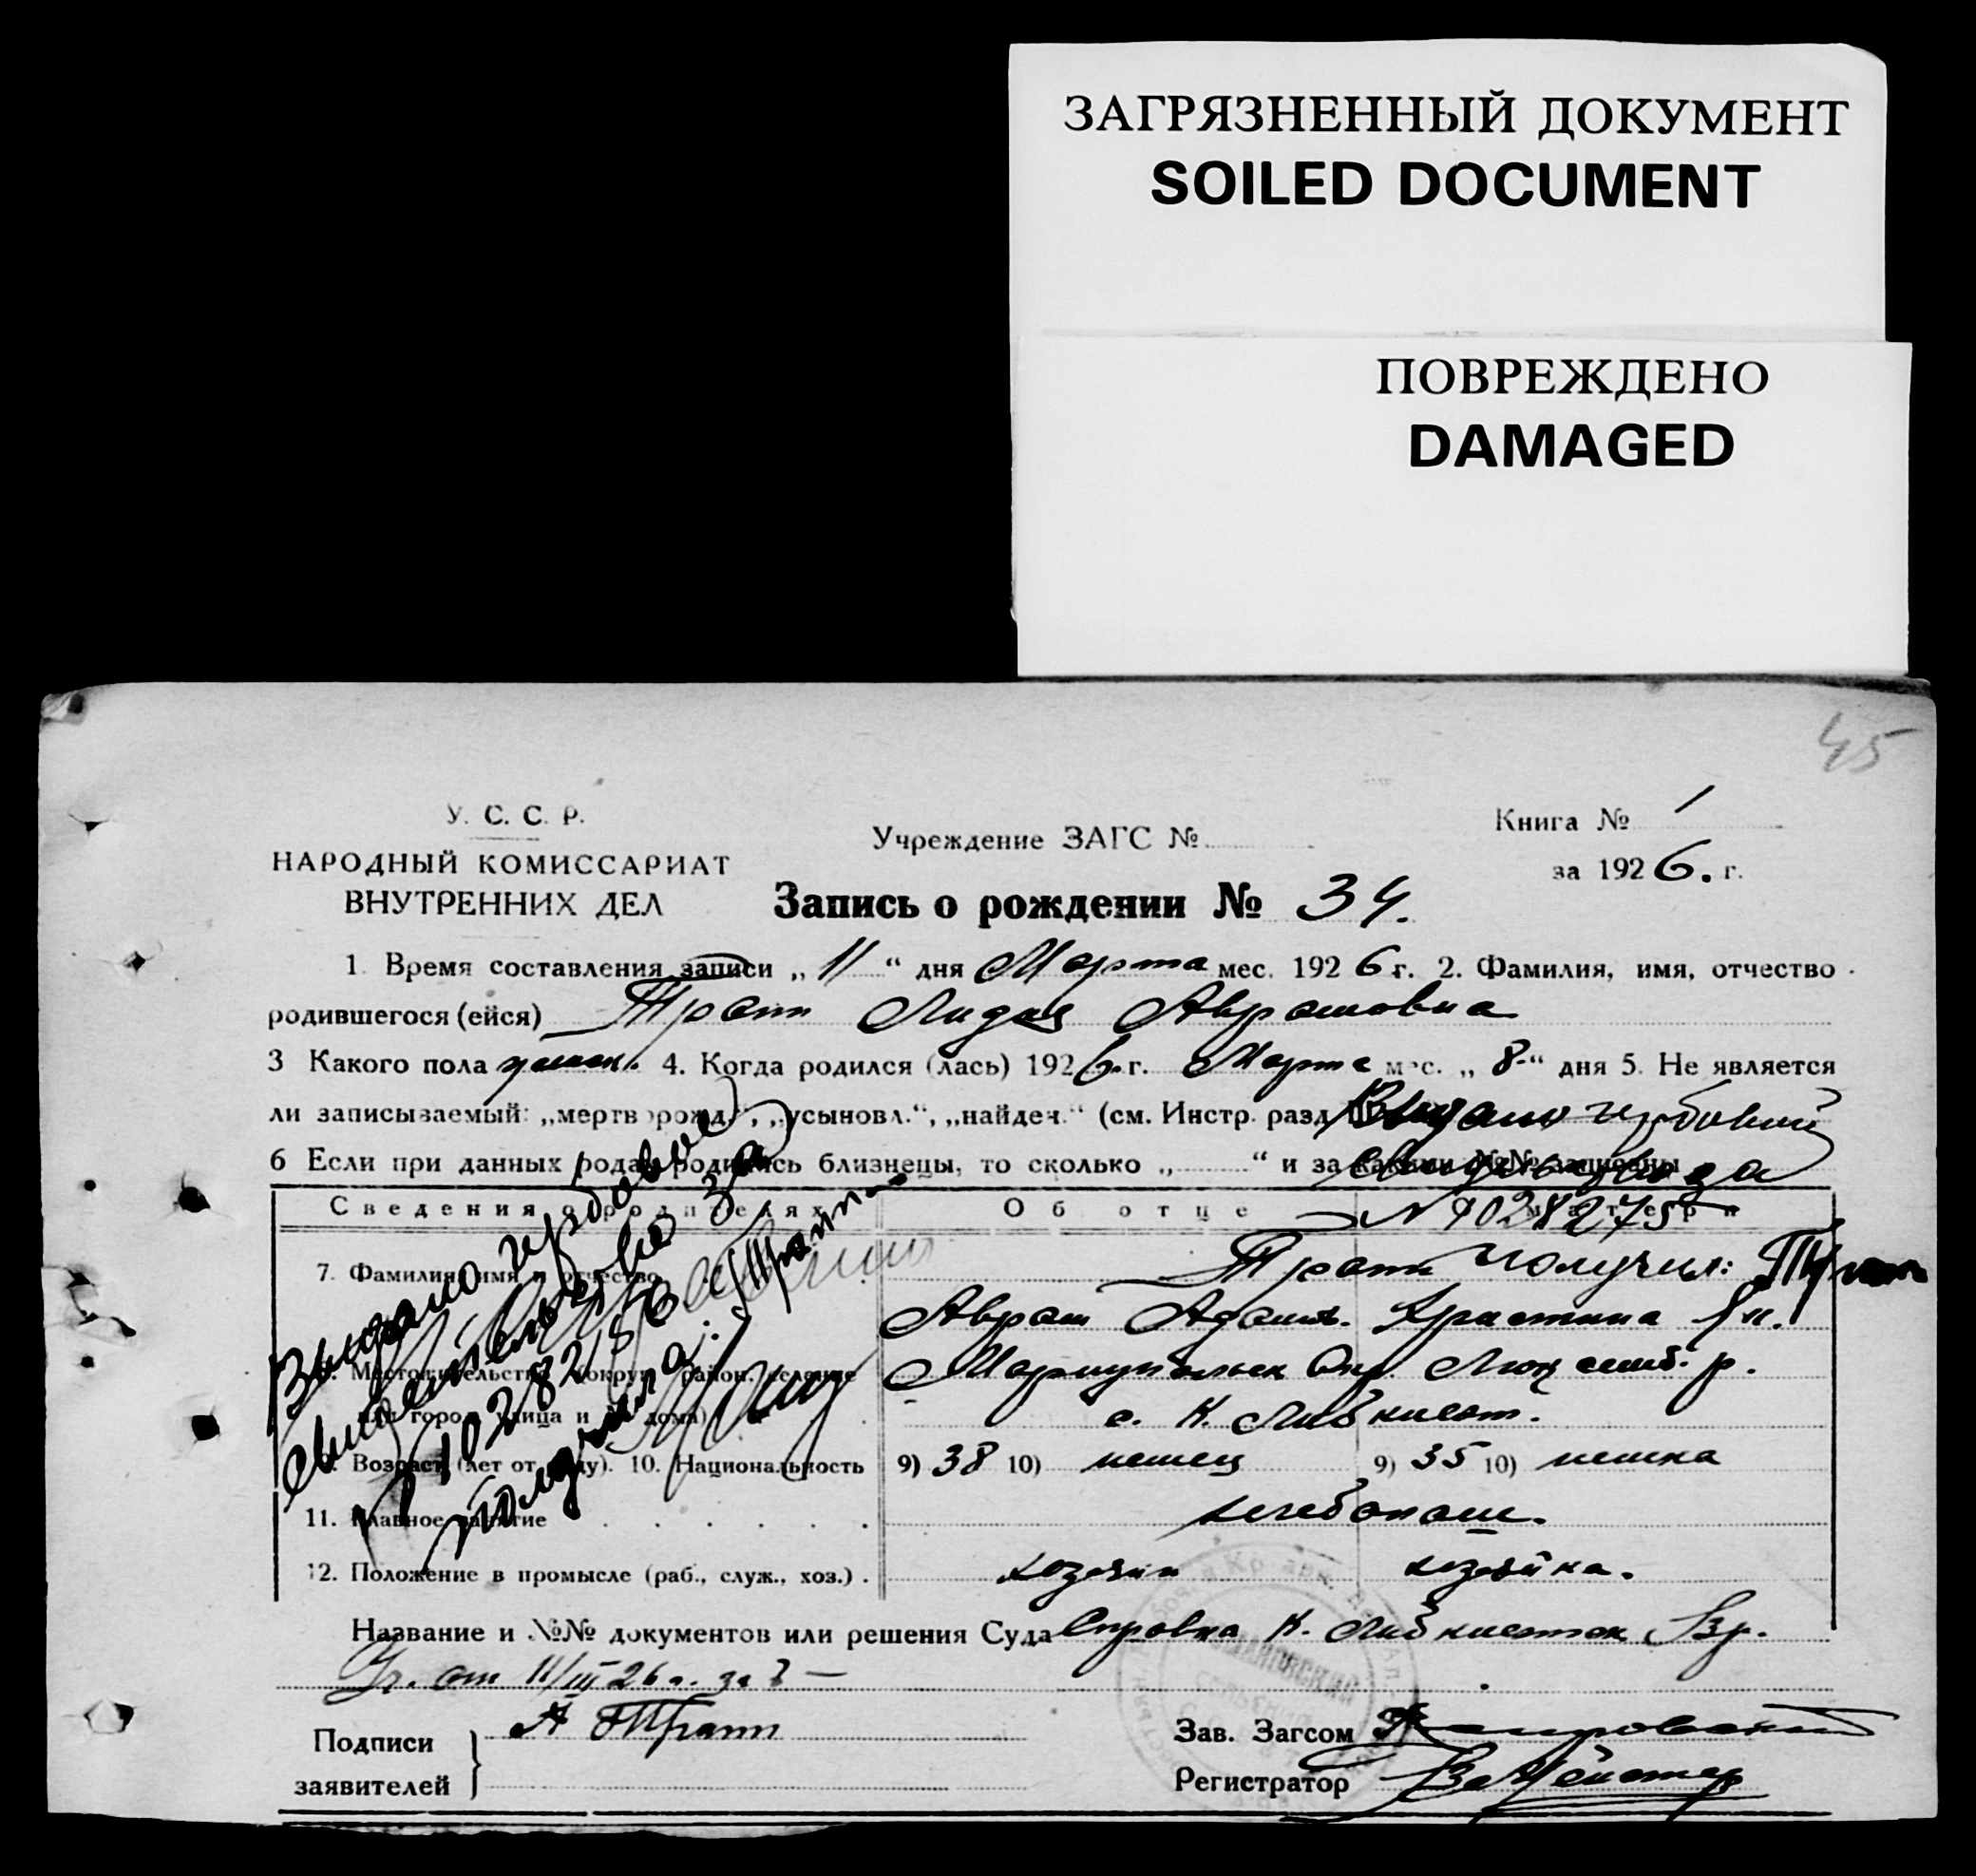 ЗАГРЯЗНЕННЫЙ ДОКУМЕНТ
SOILED DOCUMENT
ПОВРЕЖДЕНО
DAMAGED
45
У. С. С. Р.
НАРОДНЫЙ КОМИССАРИАТ
ВНУТРЕННИХ ДЕЛ
Учреждение ЗАГС №
Книга № 1
за 1926. г.
Запись о рождении № 34.
1. Время составления записи „11“ дня Марта мес. 1926 г. 2. Фамилия, имя, отчество
родившегося (ейся) Трапп Лидия Абрамовна
3 Какого пола женск. 4. Когда родился (лась) 1926.г. Марта мес. „8“ дня 5. Не является
ли записываемый: „мертворожд.“, „усыновл.“, „найден.“ (см. Инстр. разд Выдано гербовой
6 Если при данных родах родились близнецы, то сколько „ “ и за какими №№ записаны
свидетельства
Сведения о родителях Об отце матери
№ 4028275
7. Фамилия, имя и отчество Трапп получил: Трапп
Абрам Адамов. Кристина Ян.
Местожительство (округ, район, селение Мариупольск Окр. Люксемб. р.
или город, улица и № дома) с. К. Либкнехт.
Возраст (лет от роду). 10. Национальность 9) 38 10) немец 9) 35 10) немка
11. Главное занятие хлебопаш.
12. Положение в промысле (раб., служ., хоз.) . хозяин хозяйка.
Выдано гербовое
свидетельство за
получила:
Название и №№ документов или решения Суда Справка К. Либкнехтск
от 11/III 26 г. за
Подписи заявителей А Трапп
Зав. Загсом
Регистратор